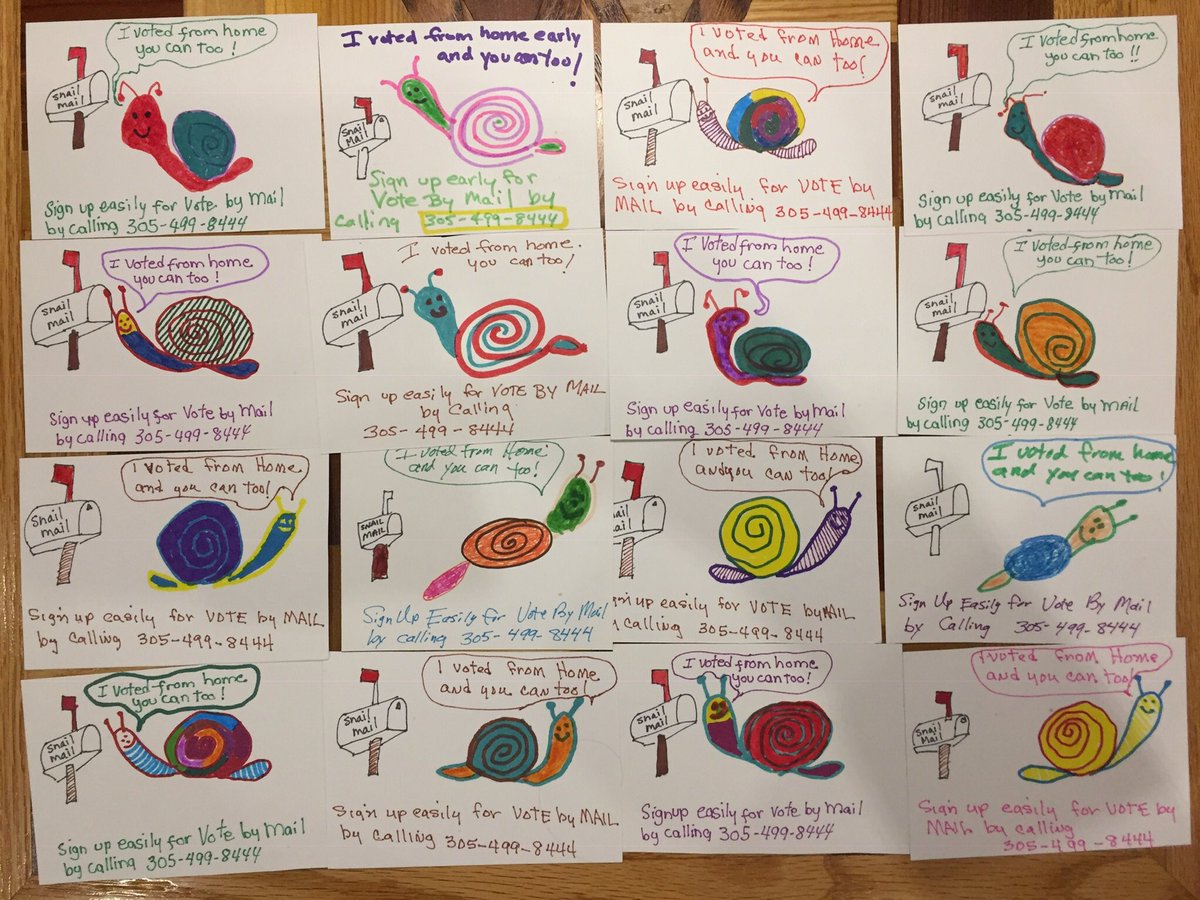 I voted from home
you can too!
Snail
mail
Sign up easily for Vote by Mail
by calling 305-499-8444
I voted from home early
and you can too!
Snail
Mail
Sign up early for
Vote By Mail by
calling 305-499-8444
I voted from Home
and you can too!
Snail
mail
Sign up easily for VOTE by
MAIL by calling 305-499-8444
I voted from home
you can too!!
Snail
mail
Sign up easily for Vote by Mail
by calling 305-499-8444
I voted from home
you can too!
Snail
mail
Sign up easily for Vote by Mail
by calling 305-499-8444
I voted from home.
you can too!
Snail
mail
Sign up easily for VOTE BY MAIL
by calling
305-499-8444
I voted from home
you can too!
Snail
mail
Sign up easily for Vote by Mail
by calling 305-499-8444
I voted from home
you can too!
Snail
mail
Sign up easily for Vote by MAIL
by calling 305-499-8444
I voted from Home
and you can too!
Snail
mail
Sign up easily for VOTE by MAIL
by calling 305-499-8444
I voted from Home
and you can too!
SNAIL
MAIL
Sign Up Easily for Vote By Mail
by calling 305-499-8444
I voted from Home
and you can too!
mail
up easily for VOTE by MAIL
calling 305-499-8444
I voted from home
and you can too!
Snail
mail
Sign Up Easily for Vote By Mail
by Calling 305-499-8444
I voted from home
you can too!
Snail
mail
Sign up easily for Vote by Mail
by calling 305-499-8444
I voted from Home
and you can too!
Snail
mail
Sign up easily for VOTE by MAIL
by calling 305-499-8444
I voted from home
you can too!
Snail
mail
Sign up easily for Vote by Mail
by calling 305-499-8444
I voted from Home
and you can too!
Snail
Mail
Sign up easily for VOTE by
MAIL by calling
305-499-8444